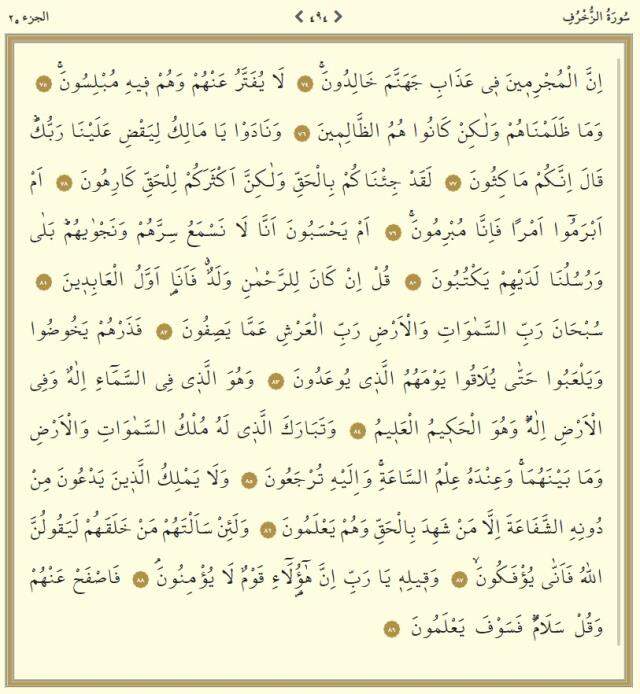 سُورَةُ الزُّخْرُفِ ٤٩٤ الجزء ٢٥
اِنَّ الْمُجْرِم۪ينَ ف۪ي عَذَابِ جَهَنَّمَ خَالِدُونَۚ ﴿٧٤﴾ لَا يُفَتَّرُ عَنْهُمْ وَهُمْ ف۪يهِ مُبْلِسُونَۚ ﴿٧٥﴾
وَمَا ظَلَمْنَاهُمْ وَلٰكِنْ كَانُوا هُمُ الظَّالِم۪ينَ ﴿٧٦﴾ وَنَادَوْا يَا مَالِكُ لِيَقْضِ عَلَيْنَا رَبُّكَۜ
قَالَ اِنَّكُمْ مَاكِثُونَ ﴿٧٧﴾ لَقَدْ جِئْنَاكُمْ بِالْحَقِّ وَلٰكِنَّ اَكْثَرَكُمْ لِلْحَقِّ كَارِهُونَ ﴿٧٨﴾ اَمْ
اَبْرَمُٓوا اَمْرًا فَاِنَّا مُبْرِمُونَۚ ﴿٧٩﴾ اَمْ يَحْسَبُونَ اَنَّا لَا نَسْمَعُ سِرَّهُمْ وَنَجْوٰيهُمْۜ بَلٰى
وَرُسُلُنَا لَدَيْهِمْ يَكْتُبُونَ ﴿٨٠﴾ قُلْ اِنْ كَانَ لِلرَّحْمٰنِ وَلَدٌۗ فَاَنَا۬ اَوَّلُ الْعَابِد۪ينَ ﴿٨١﴾
سُبْحَانَ رَبِّ السَّمٰوَاتِ وَالْاَرْضِ رَبِّ الْعَرْشِ عَمَّا يَصِفُونَ ﴿٨٢﴾ فَذَرْهُمْ يَخُوضُوا
وَيَلْعَبُوا حَتّٰى يُلَاقُوا يَوْمَهُمُ الَّذ۪ي يُوعَدُونَ ﴿٨٣﴾ وَهُوَ الَّذ۪ي فِي السَّمَٓاءِ اِلٰهٌ وَفِي
الْاَرْضِ اِلٰهٌۜ وَهُوَ الْحَك۪يمُ الْعَل۪يمُ ﴿٨٤﴾ وَتَبَارَكَ الَّذ۪ي لَهُ مُلْكُ السَّمٰوَاتِ وَالْاَرْضِ
وَمَا بَيْنَهُمَاۚ وَعِنْدَهُ عِلْمُ السَّاعَةِۚ وَاِلَيْهِ تُرْجَعُونَ ﴿٨٥﴾ وَلَا يَمْلِكُ الَّذ۪ينَ يَدْعُونَ مِنْ
دُونِهِ الشَّفَاعَةَ اِلَّا مَنْ شَهِدَ بِالْحَقِّ وَهُمْ يَعْلَمُونَ ﴿٨٦﴾ وَلَئِنْ سَاَلْتَهُمْ مَنْ خَلَقَهُمْ لَيَقُولُنَّ
اللّٰهُ فَاَنّٰى يُؤْفَكُونَۙ ﴿٨٧﴾ وَق۪يلِه۪ يَا رَبِّ اِنَّ هٰٓؤُ۬لَٓاءِ قَوْمٌ لَا يُؤْمِنُونَۢ ﴿٨٨﴾ فَاصْفَحْ عَنْهُمْ
وَقُلْ سَلَامٌۜ فَسَوْفَ يَعْلَمُونَ ﴿٨٩﴾